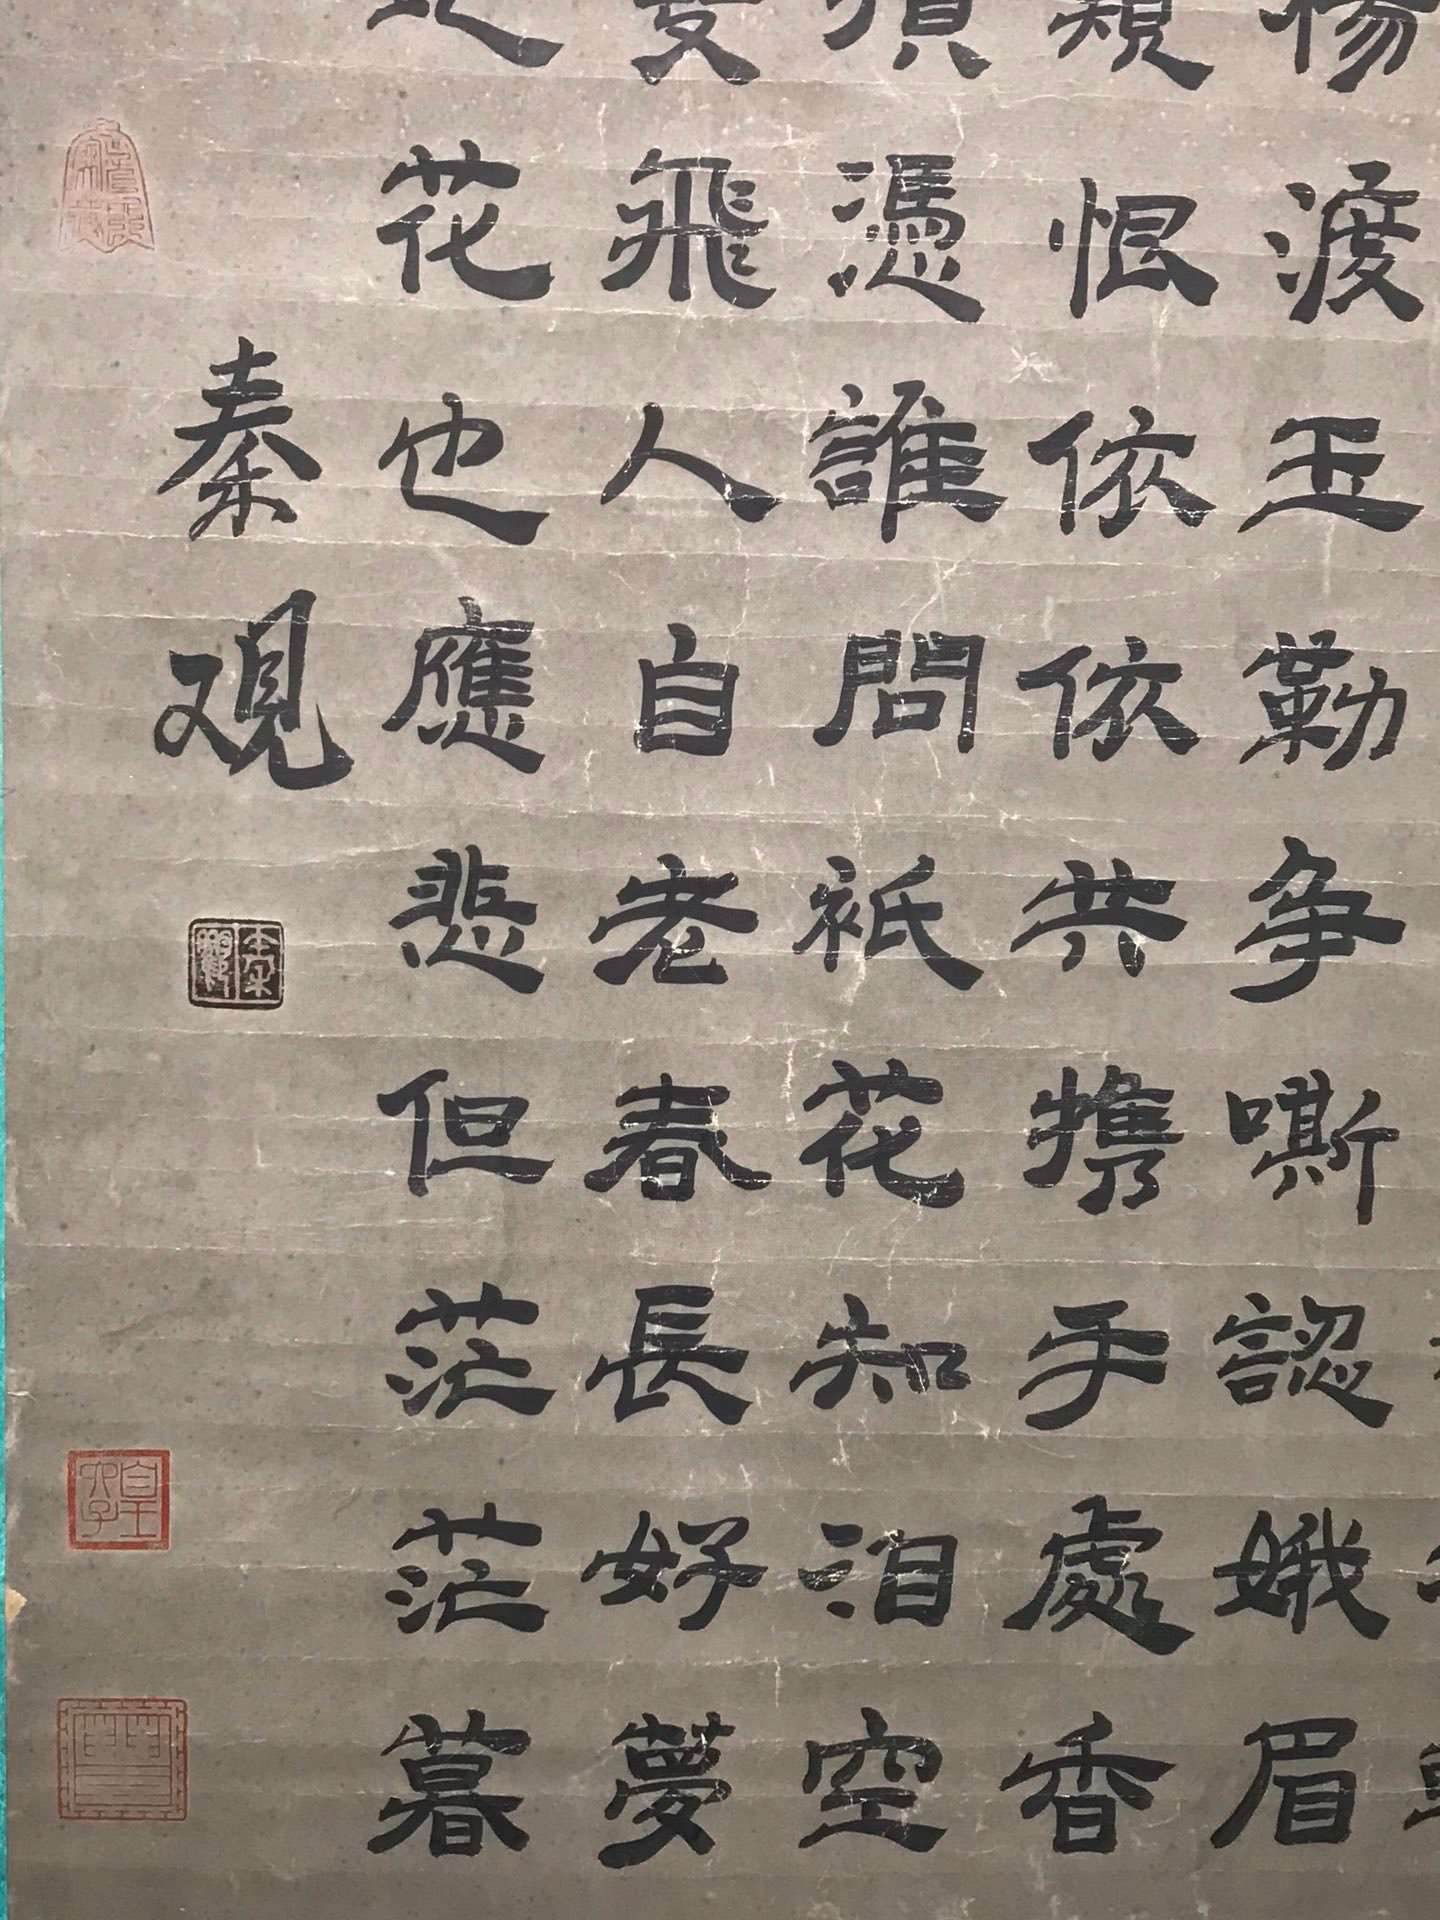 楊渡玉勒争嘶認娥眉
恨依依共携手處香
憑誰問祇花知泪空
飛人自老春長好夢
花也應悲但茫茫暮
秦观
皇六子